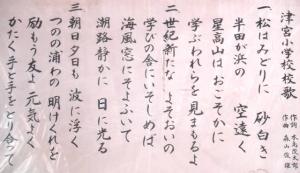 津宮小学校校歌
作詞 木島俊太郎
作曲 森山俊雄
一、松はみどりに 砂白き
半田が浜の 空遠く
星高山はおごそかに
学ぶわれらを見まもるよ
二、世紀新たな よそおいの
学びの舎にいそしめば
海風窓にそよふいて
潮路静かに 日に光る
三、朝日夕日も 波に浮く
つのの浦わの 明けくれを
励もう友よ 元気よく
かたく手と手をとり合って